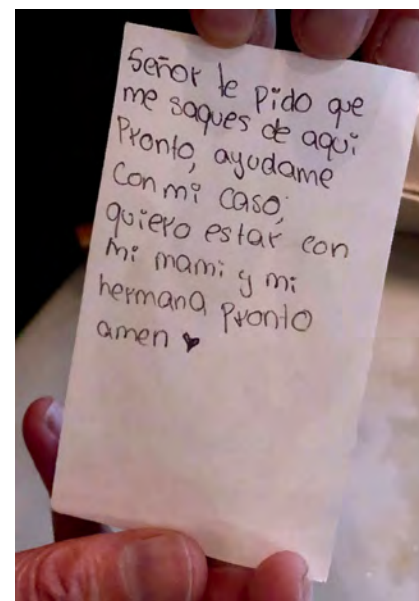 Señor le pido que
me saques de aqui
Pronto, ayudame
con mi caso,
quiero estar con
mi mami y mi
hermana pronto
amen ♥